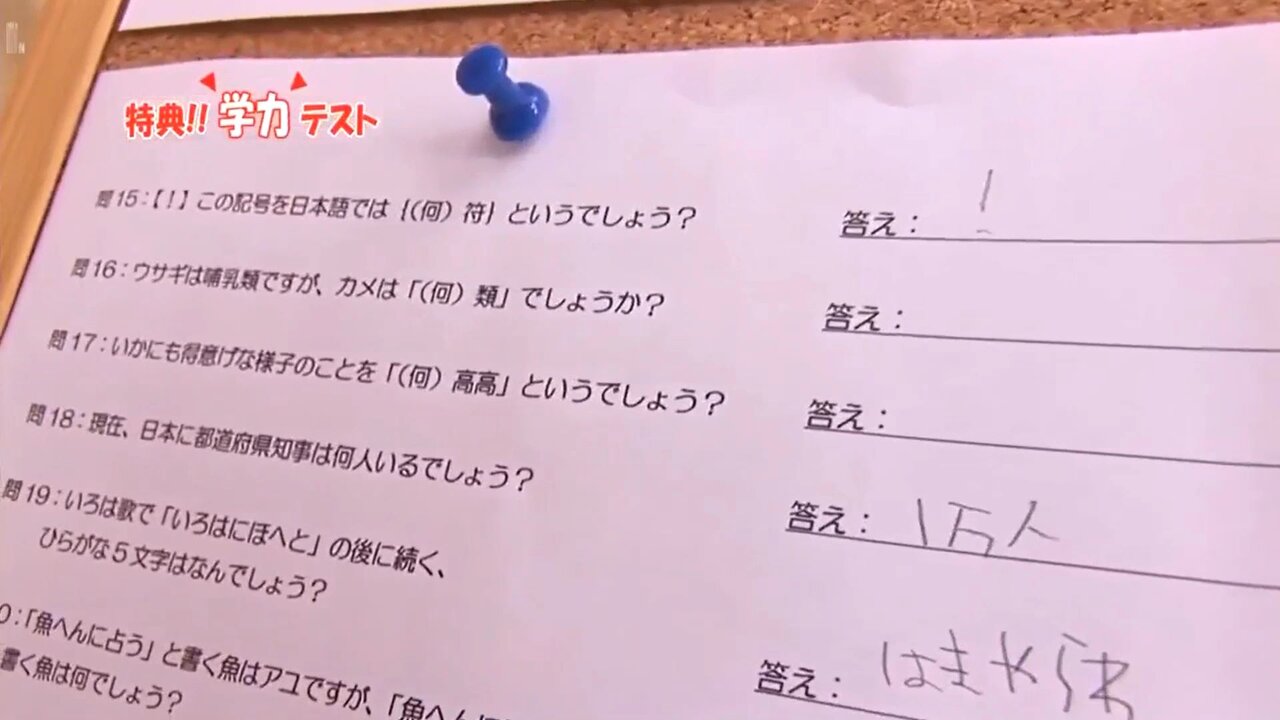 特典!! 学力 テスト
問15：【！】この記号を日本語では｛(何）符｝というでしょう？
答え： !
問16：ウサギは哺乳類ですが、カメは「(何）類」でしょうか？
答え：
問17：いかにも得意げな様子のことを「(何）高高」というでしょう？
答え：
問18：現在、日本に都道府県知事は何人いるでしょう？
答え： 1万人
問19：いろは歌で「いろはにほへと」の後に続く、
ひらがな５文字はなんでしょう？
答え： はまやらわ
0：「魚へんに占う」と書く魚はアユですが、「魚へん
書く魚は何でしょう？